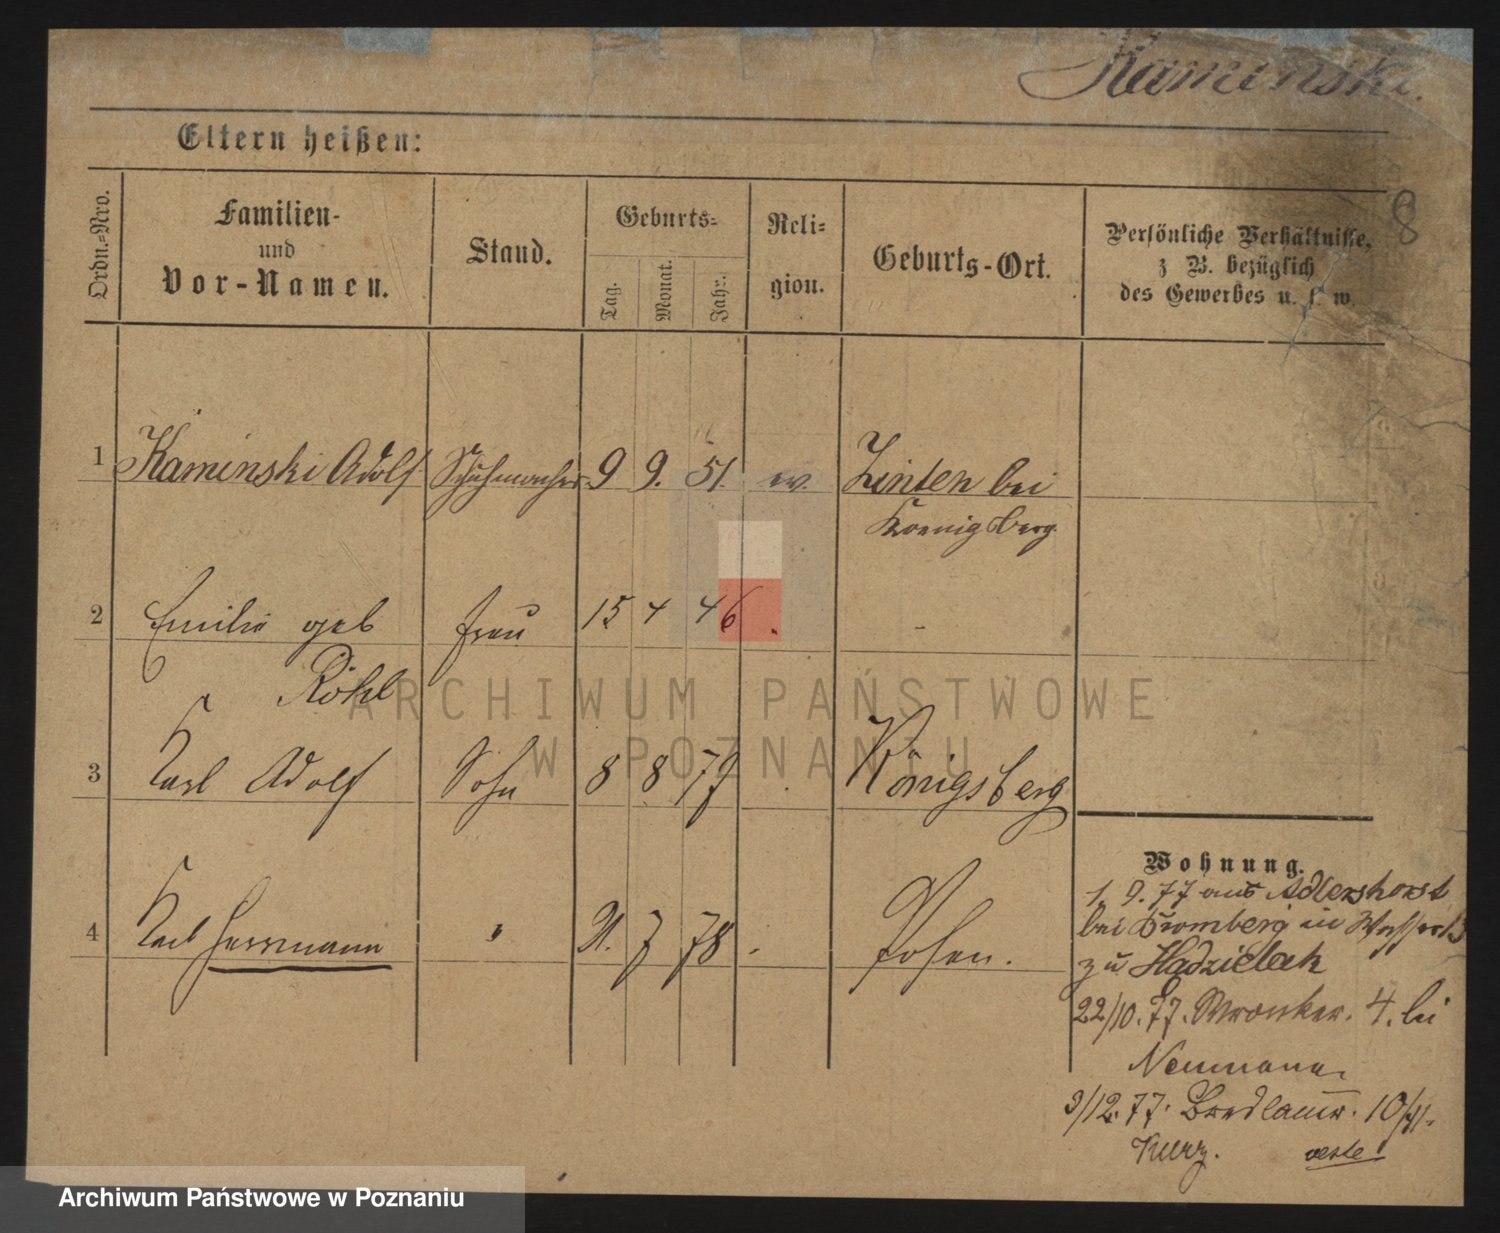 Kaminski.
Eltern heißen:
8
Ordn.-Nro.
Familien-
und
Vor-Namen.
Stand.
Geburts-
Tag.
Monat.
Jahr.
Reli-
gion.
Geburts-Ort.
Persönliche Verhältnisse,
z B. bezüglich
des Gewerbes u. s. w.
1 Kaminski Adolf Schuhmacher 9 9. 51. ev. Zinten bei
Koenigsberg.
2 Emilie geb Frau 15 4 46
Röhl
3 Karl Adolf Sohn 8 8 79 Königsberg
4 Karl Herrmann " 21. 7 78 Posen.
Wohnung.
1. 9. 77 aus Adlershorst
bei Bromberg in
zu Hadzielek
22/10. 77. Wronker. 4. bei
Neumann
3/12. 77. Breslauer. 10/11.
Kurz.
ARCHIWUM PAŃSTWOWE
W POZNANIU
Archiwum Państwowe w Poznaniu